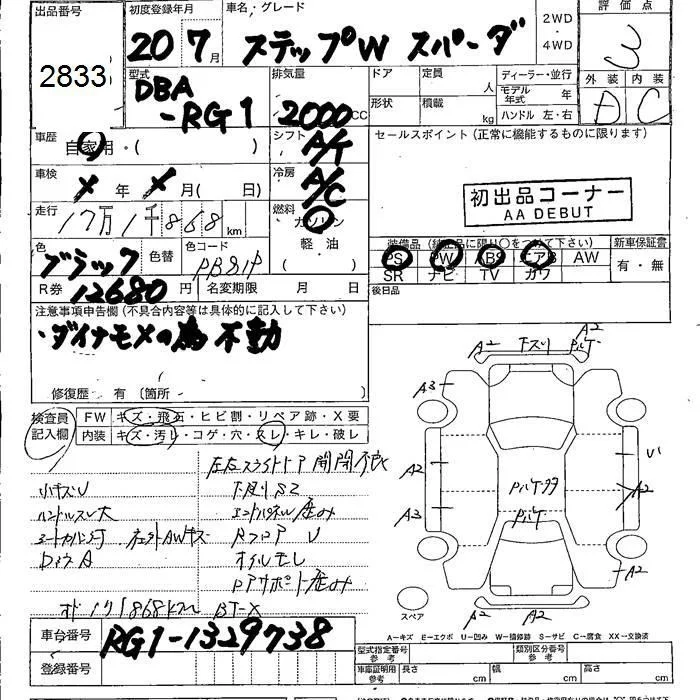 出品番号 初度登録年月 車名・グレード 2WD・4WD 評価点
2833 20 7月 ステップW スパーダ 3
型式 排気量 ドア 定員 人 ディーラー・並行 外装 内装
DBA-RG1 2000CC 形状 積載 kg モデル年式 年 D C
ハンドル 左・右
車歴 自家用・( ) シフト A/T セールスポイント (正常に機能するものに限ります)
車検 X年 X月( 日) 冷房 A/C
初出品コーナー
AA DEBUT
走行 17万1千868km 燃料 ガソリン
軽・油
( )
色 ブラック 色替 色コード PB81P
装備品 (純正品に限り○をつけて下さい) 新車保証書
PS PW ABS エアB AW 有・無
SR ナビ TV カワ
R券 12680円 名変期限 月 日 後日品
注意事項申告欄 (不具合内容等は具体的に記入して下さい)
・ダイナモメの為不動
修復歴・有 (箇所 )
検査員記入欄 FW キズ・飛石・ヒビ割・リペア跡・X要
内装 キズ・汚レ・コゲ・穴・スレ・キレ・破レ
左右スライドドア開閉不良
小キズU 下廻りS2
ハンドルスレ大 エンドパネル歪み
AWキズ RフロアU
オイルモレ
Pアサポート歪み
BT-X
A2 下スリ PルケA2
A3
A2 U
A3 A2
Pルケ
A2
スペア A2 A2
A-キズ E-エクボ U-凹み W-補修跡 S-サビ C-腐食 XX-交換済
車台番号 RG1-1329738
登録番号
型式指定番号 参考 類別区分番号 参考
車庫証明用 参考 長さ cm 幅 cm 高さ cm